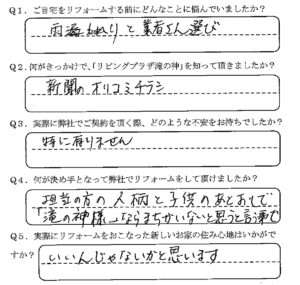 Q1．ご自宅をリフォームする前にどんなことに悩んでいましたか？
雨漏れと業者さん選び
Q2．何がきっかけで、「リビングプラザ滝の神」を知って頂きましたか？
新聞のオリコミチラシ
Q3．実際に弊社でご契約を頂く際、どのような不安をお持ちでしたか？
特に有りません
Q4．何が決め手となって弊社でリフォームをして頂けましたか？
担当の方の人柄と子供のあとおしで
「滝の神様」ならまちがいないと思うと言葉で
Q5．実際にリフォームをおこなった新しいお家の住み心地はいかがで
すか？
いいんじゃないかと思います